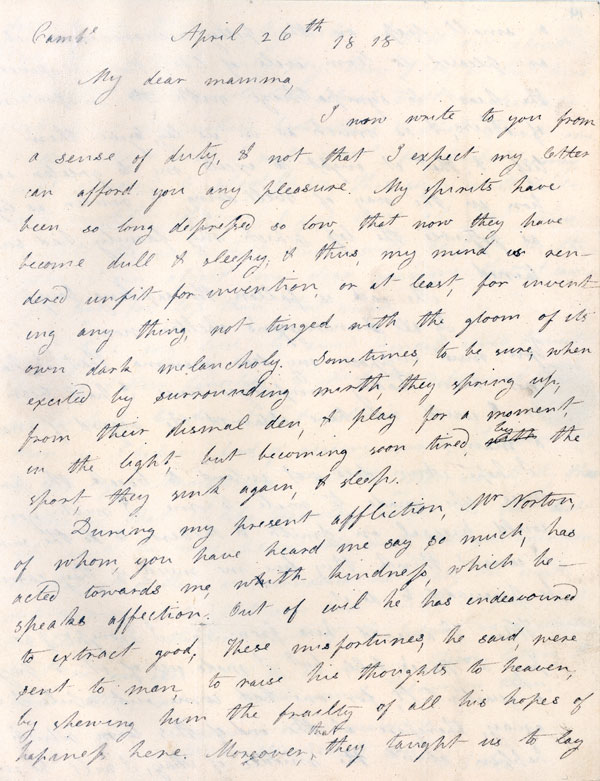 Camb.e April 26th 1818
My dear mamma,
I now write to you from
a sense of duty, & not that I expect my letter
can afford you any pleasure. My spirits have
been so long depressed so low, that now they have
become dull & sleepy, & thus, my mind is ren-
dered unfit for invention, or at least, for invent-
ing any thing, not tinged with the gloom of its
own dark melancholy. Sometimes, to be sure, when
excited by surrounding mirth, they spring up,
from their dismal den, & play for a moment,
in the light, but becoming soon tired, by the
sport, they sink again, & sleep.
During my present affliction, Mr Norton,
of whom, you have heard me say so much, has
acted towards me, with kindness, which be-
speaks affection. Out of evil he has endeavoured
to extract good, These misfortunes, he said, were
sent to man, to raise his thoughts to heaven,
by shewing him the frailty of all his hopes of
hapiness here. Moreover, that they taught us to lay